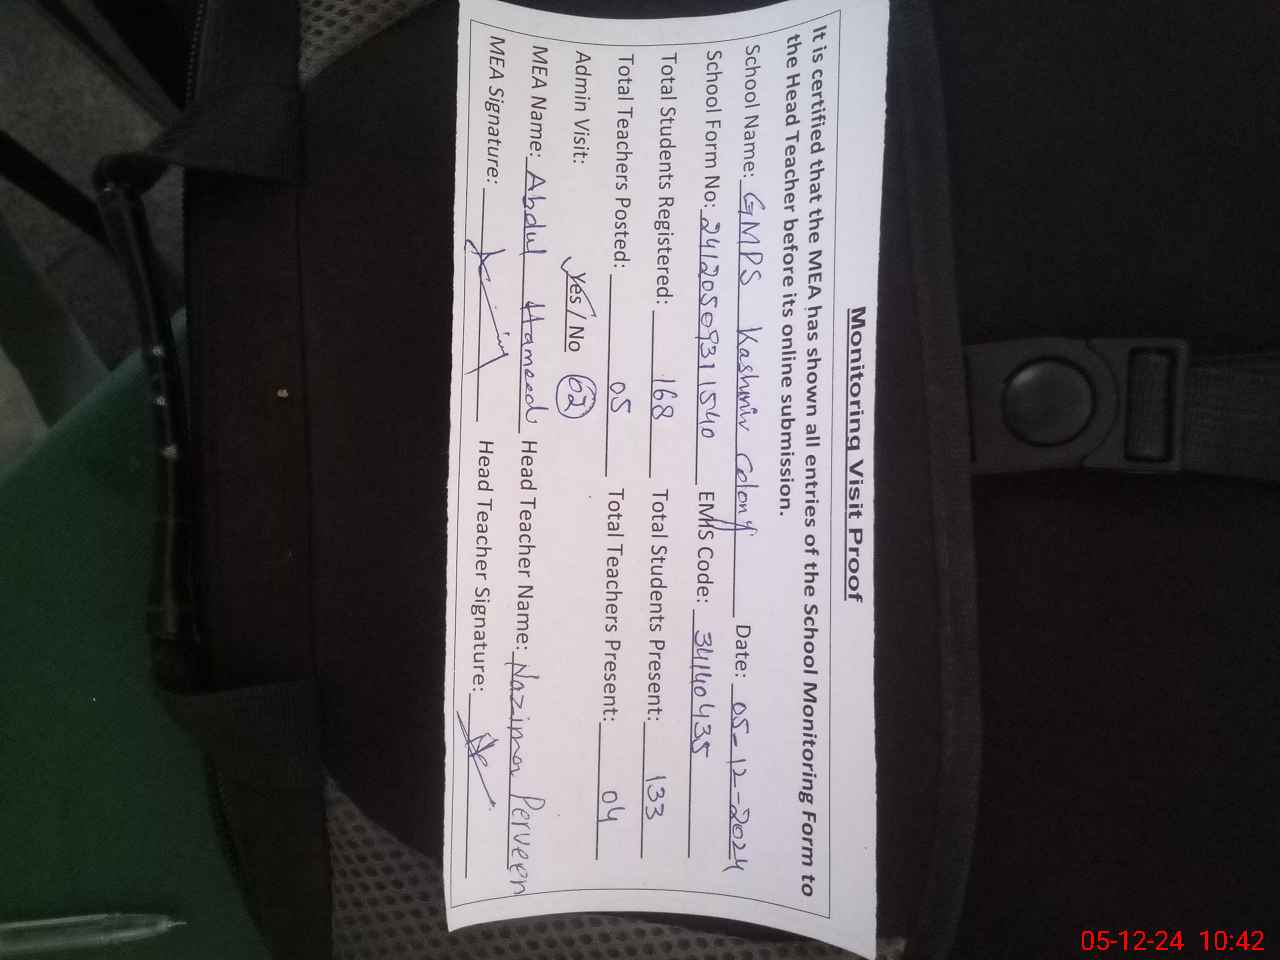 Monitoring Visit Proof
It is certified that the MEA has shown all entries of the School Monitoring Form to
the Head Teacher before its online submission.
School Name: GMPS Kashmir Colony Date: 05-12-2024
School Form No: 241205093711540 EMIS Code: 34140435
Total Students Registered: 168 Total Students Present: 133
Total Teachers Posted: 05 Total Teachers Present: 04
Admin Visit: Yes / No 02
MEA Name: Abdul Hameed Head Teacher Name: Perveen
MEA Signature: Head Teacher Signature:
05-12-24 10:42